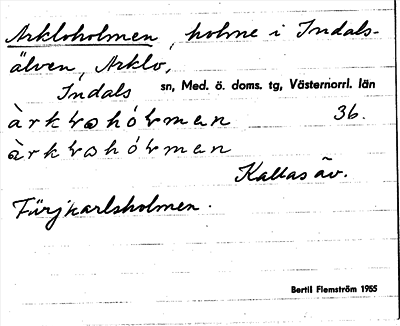 Arkloholmen, holme i Indals-
älven, Arklo,
Indals sn, Med. ö. doms. tg, Västernorrl. län
36.
Kallas äv.
Färjkarlsholmen.
Bertil Flemström 1955